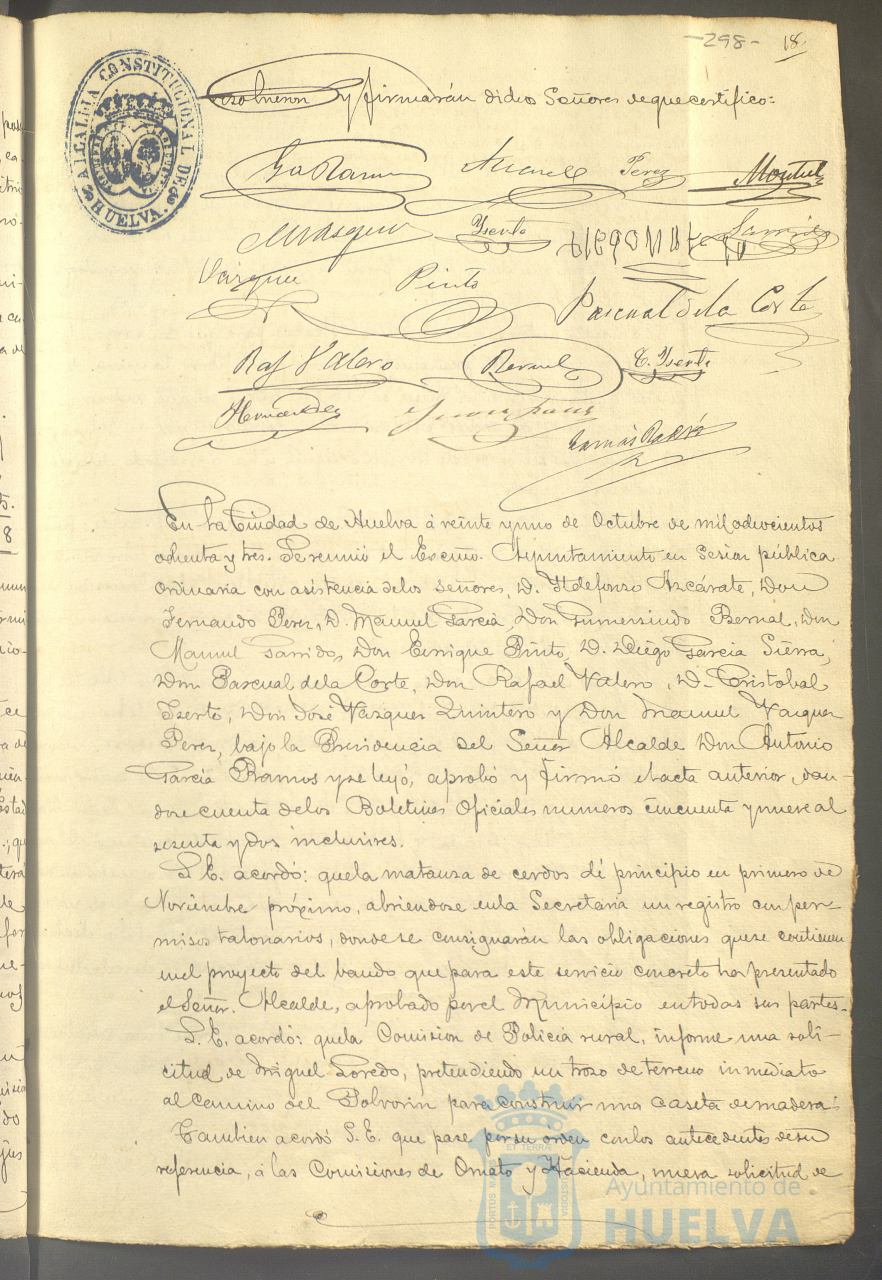 -298- 18
ALCALDIA CONSTITUCIONAL DE
HUELVA.
y firmarán dichos Señores de que certifico:
Perez Montiel
Yserto
Vázquez Pinto Pascual de la Corte
Raf Valero Bernal C. Yserto
Hernandez
Tomás
En la Ciudad de Huelva á veinte y uno de Octubre de mil ochocientos
ochenta y tres. Se reunió el Excmo. Ayuntamiento en Sesion pública
Ordinaria con asistencia de los Señores, D. Ildefonso Azcárate, Don
Fernando Perez, D. Manuel Garcia, Don Gumersindo Bernal, Don
Manuel Garrido, Don Enrique Pinto, D. Diego Garcia Sierra,
Don Pascual de la Corte, Don Rafael Valero, D. Cristobal
Yserto, Don José Vazquez Quintero y Don Manuel Vazquez
Perez, bajo la Presidencia del Señor Alcalde Don Antonio
Garcia Ramos y se leyó, aprobó y firmó el acta anterior, dan-
dose cuenta de los Boletines Oficiales numeros cincuenta y nueve al
sesenta y dos inclusives.
S. E. acordó: que la matanza de cerdos dé principio en primero de
Noviembre próximo, abriendose en la Secretaria un registro con per-
misos talonarios, donde se consignarán las obligaciones que se contienen
en el proyecto del bando que para este servicio concreto ha presentado
el Señor Alcalde, aprobado por el Municipio en todas sus partes.
S. E. acordó: que la Comision de Policía rural, informe una soli-
citud de Miguel Loredo, pretendiendo un trozo de terreno inmediato
al Camino del Polvorin para construir una caseta de madera.
Tambien acordó S. E. que pase por su orden con los antecedentes de su
referencia, á las Comisiones de Ornato y Hacienda, nueva solicitud de
Ayuntamiento de
HUELVA